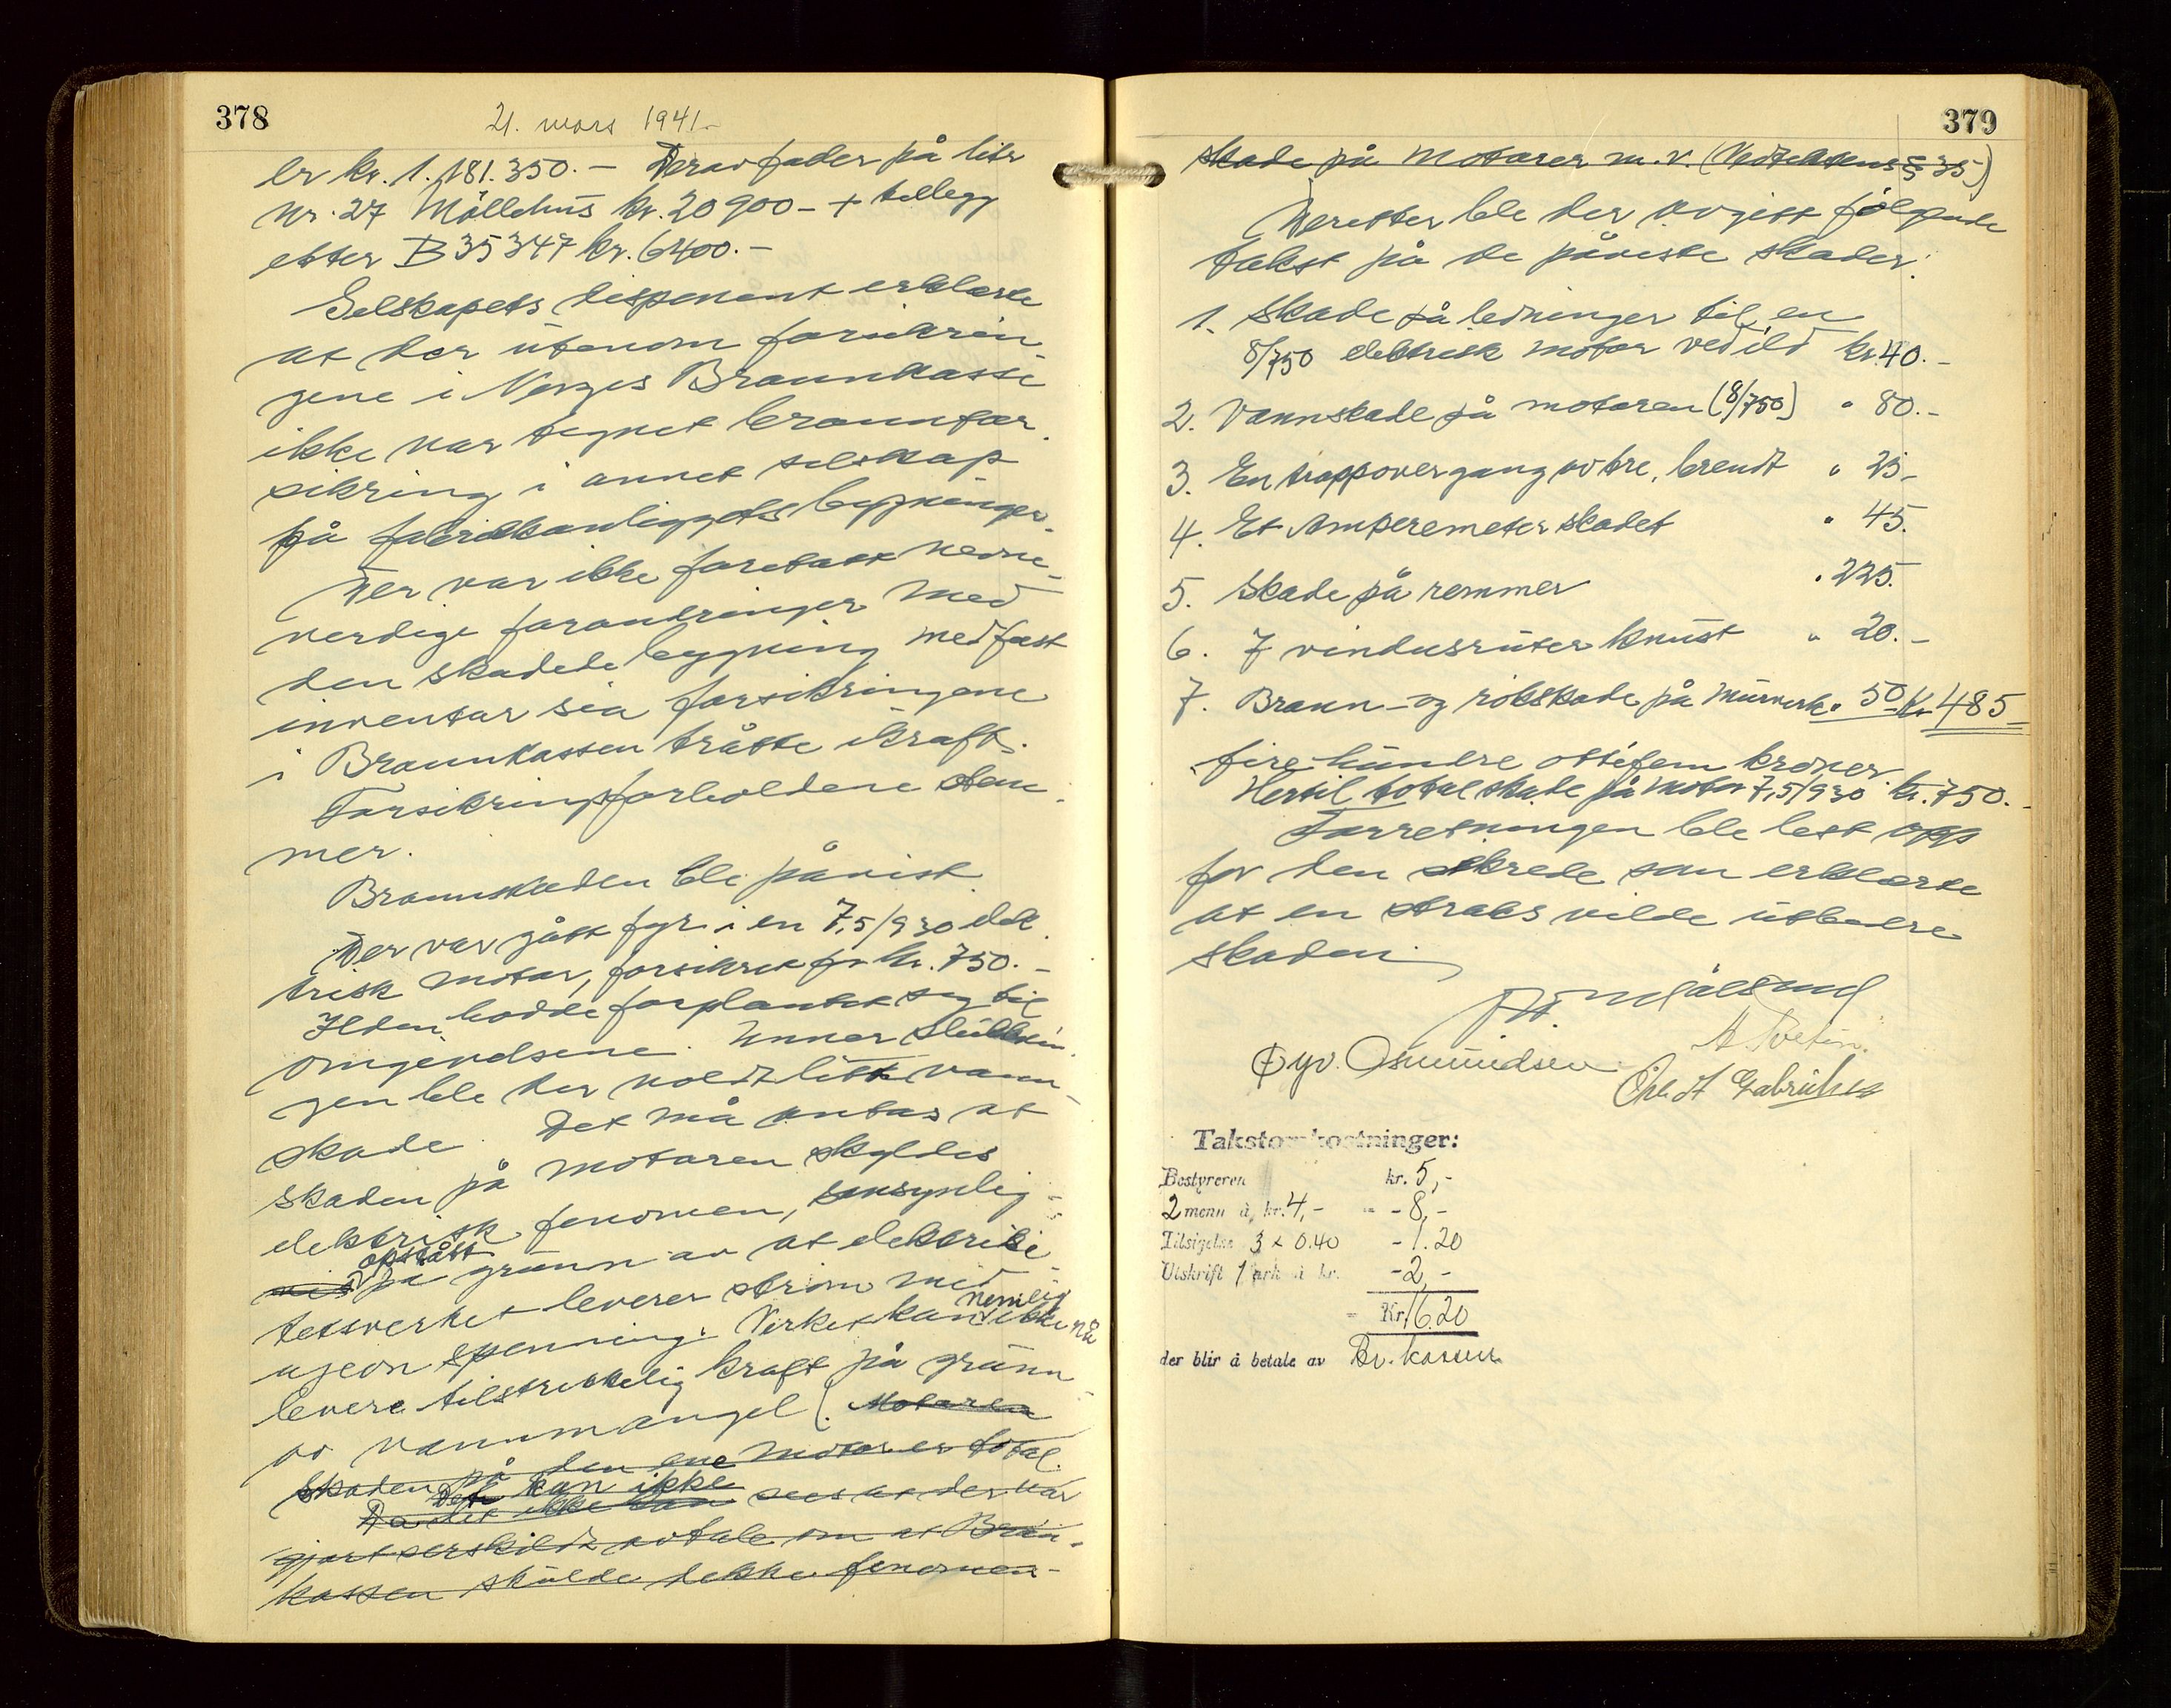 378
21. mars 1941.
er kr. 1.181.350.- Derav faller på litr
nr. 27 Möllehus kr. 20900- + tillegg
etter B 35347 kr. 6400.-
Selskapets disponent erklærte
at der utenom forsikrin-
gene i Norges Brannkasse
ikke var tegnet brannfor-
sikring i annet selskap
på fabrikkanleggets bygninger.
Der var ikke foretatt nevne-
verdige forandringer med
den skadede bygning med fast
inventar sia forsikringene
i Brannkassen trådte ikraft.
Forsikringsforholdene stem-
mer.
Brannskaden ble påvist.
Der var gått fyr i en 7,5/930 elek
trisk motor, forsikret for kr. 750.-
Ilden hadde forplantet seg til
omgivelsene. Under slukkin-
gen ble der voldt litt vann-
skade. Det må antas at
skaden på motoren skyldes
elektrisk fenomen, sansynlig-
vis opstått på grunn av at elektrisi-
tetsverket leverer strøm med
ujevn spenning. Verket kan nemlig ikke nå
levere tilstrekkelig kraft på grunn
av vannmangel. Motoren
skaden på den ene motor er total.
Det kan ikke
Da det ikke kan sees at der var
gjort særskildt avtale om at Bran-
kassen skulde dekke fenomen-
379
skade på motorer m.v. (Vedtektens § 35)
Deretter ble der avgitt følgende
takst på de påviste skader:
1. Skade på ledninger til en
8/750 elektrisk motor ved ild kr. 40.-
2. Vannskade på motoren (8/750) " 80.-
3. En trappovergang av tre, brendt " 25-
4. Et Amperemeter skadet " 45.
5. Skade på remmer " 225.
6. 7 vindusruter knust " 20.-
7. Brann- og røkskade på murverk " 50 Kr 485
fire hundre ottifem kroner.
Hertil total skade på motor 7,5/930 kr. 750.-
Forretningen ble lest opp
for den sikrede som erklærte
at en straks vilde utbedre
skaden.
Øyv. Osmundsen
A. Tveten
Chr. A Gabrielsen
Takstomkostninger:
Bestyreren kr. 5,-
2 menn à kr. 4,- " - 8,-
Tilsigelse 3 x 0.40 - 1.20
Utskrift 1 ark à kr. - 2,-
= Kr. 16.20
der blir å betale av Br. kassen